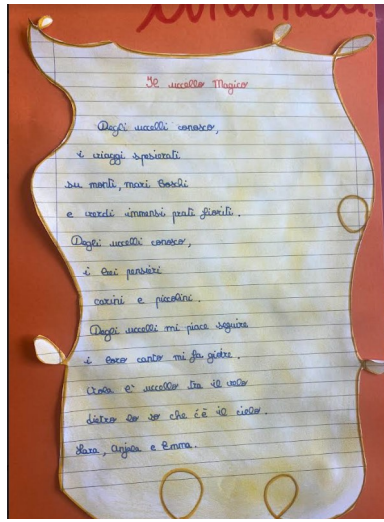 Il uccello Magico
Degli uccelli conosco,
i viaggi spesierati
su monti, mari boschi
e verdi immensi prati fioriti.
Degli uccelli conosco,
i bei pensieri
carini e piccolini.
Degli uccelli mi piace seguire
i loro canto mi fa gioire.
Vola e' uccello tra il velo
dietro lo so che c'è il cielo.
Sara, Anjela e Emma.